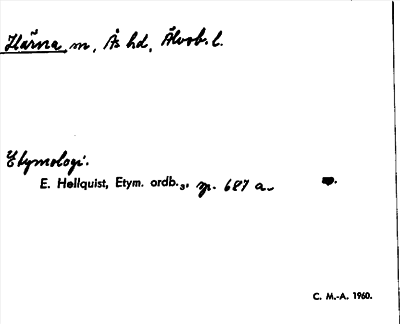 Härna m, Ås hd, Älvsb. l.
Etymologi.
E. Hellquist, Etym. ordb.₃, p. 687 a.
C. M.-A. 1960.